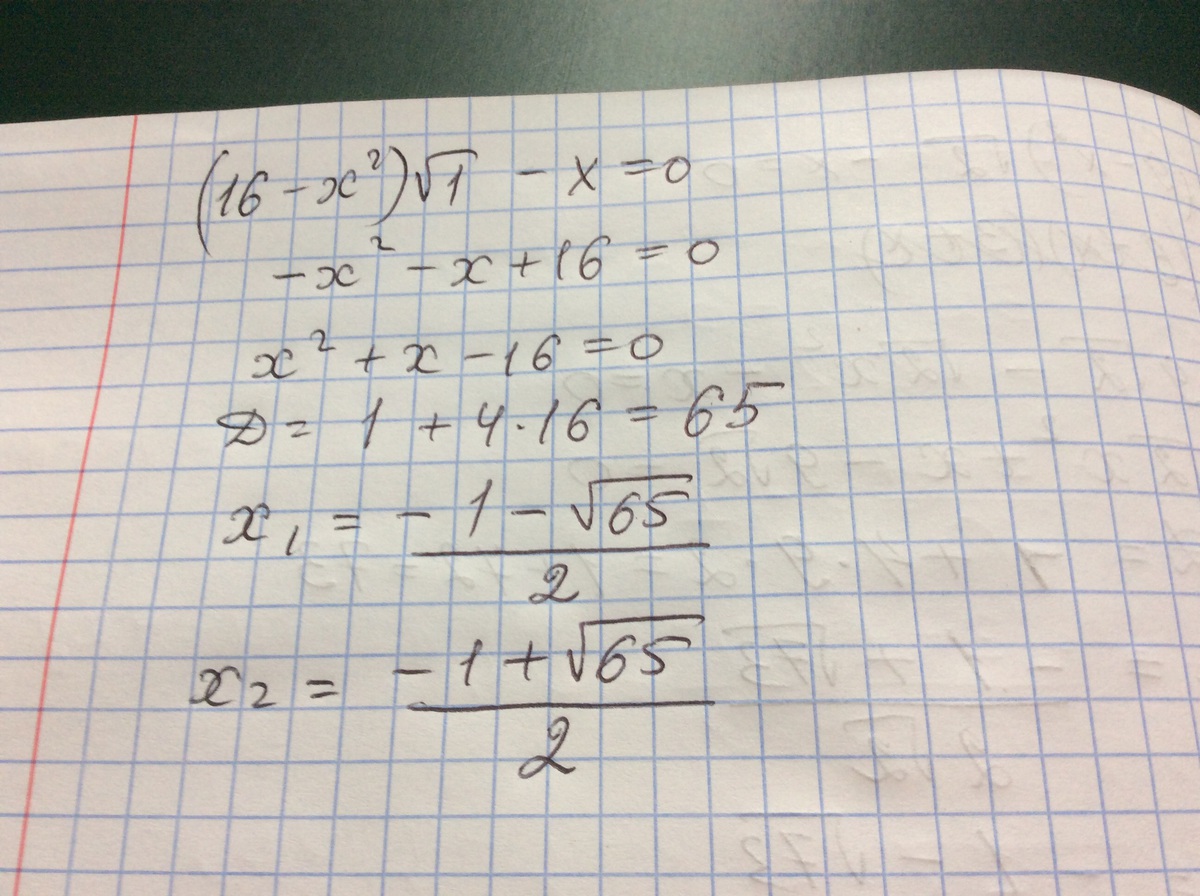 (16 - x²)√1 - x = 0
-x² - x + 16 = 0
x² + x - 16 = 0
D = 1 + 4·16 = 65
x₁ = (-1 - √65)/2
x₂ = (-1 + √65)/2